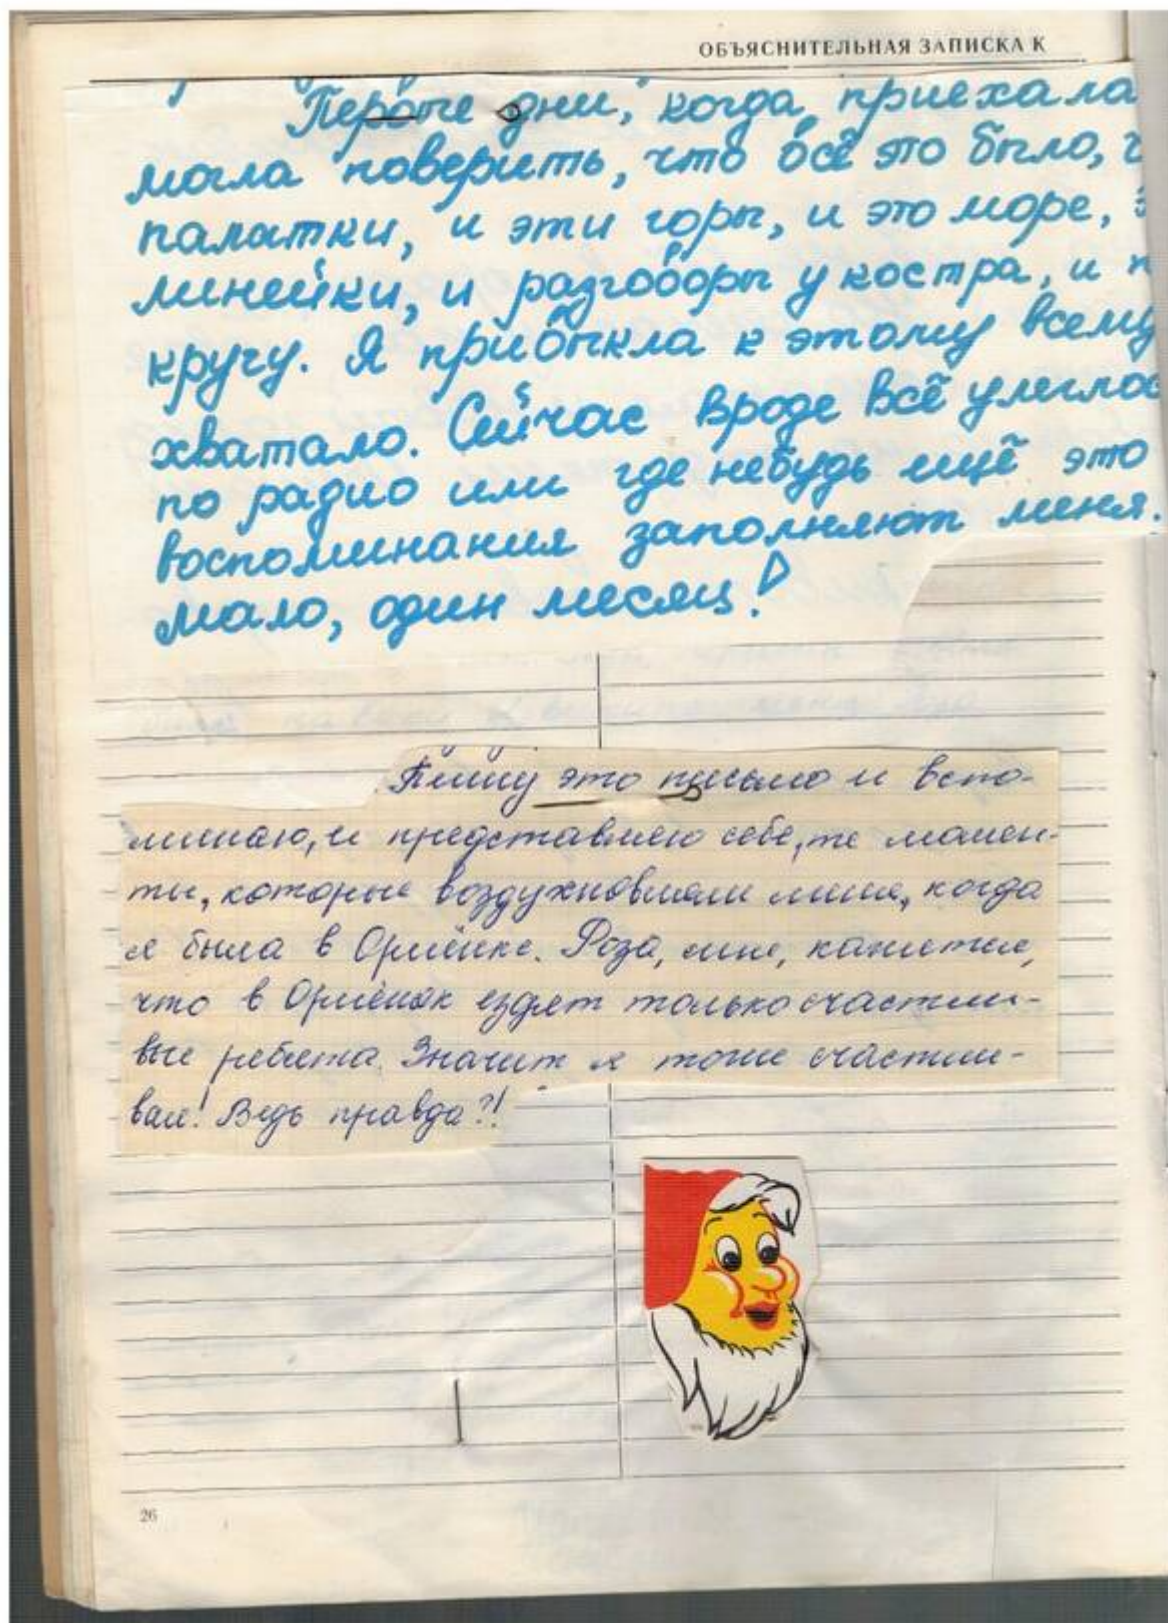 ОБЪЯСНИТЕЛЬНАЯ ЗАПИСКА К
Первые дни, когда приехала
могла поверить, что всё это было,
палатки, и эти горы, и это море,
линейки, и разговоры у костра, и
кругу. Я привыкла к этому всему
хватало. Сейчас вроде всё улеглос
по радио или где небудь ещё это
воспоминания заполняют меня.
мало, один месяц!
Пишу это письмо и вспо-
минаю, и представляю себе, те момен-
ты, которые воздухновляли меня, когда
я была в Орлёнке. Роза, мне, кажется,
что в Орлёнок ездят только счастли-
вые ребята. Значит я тоже счастли-
вая! Ведь правда?!
26